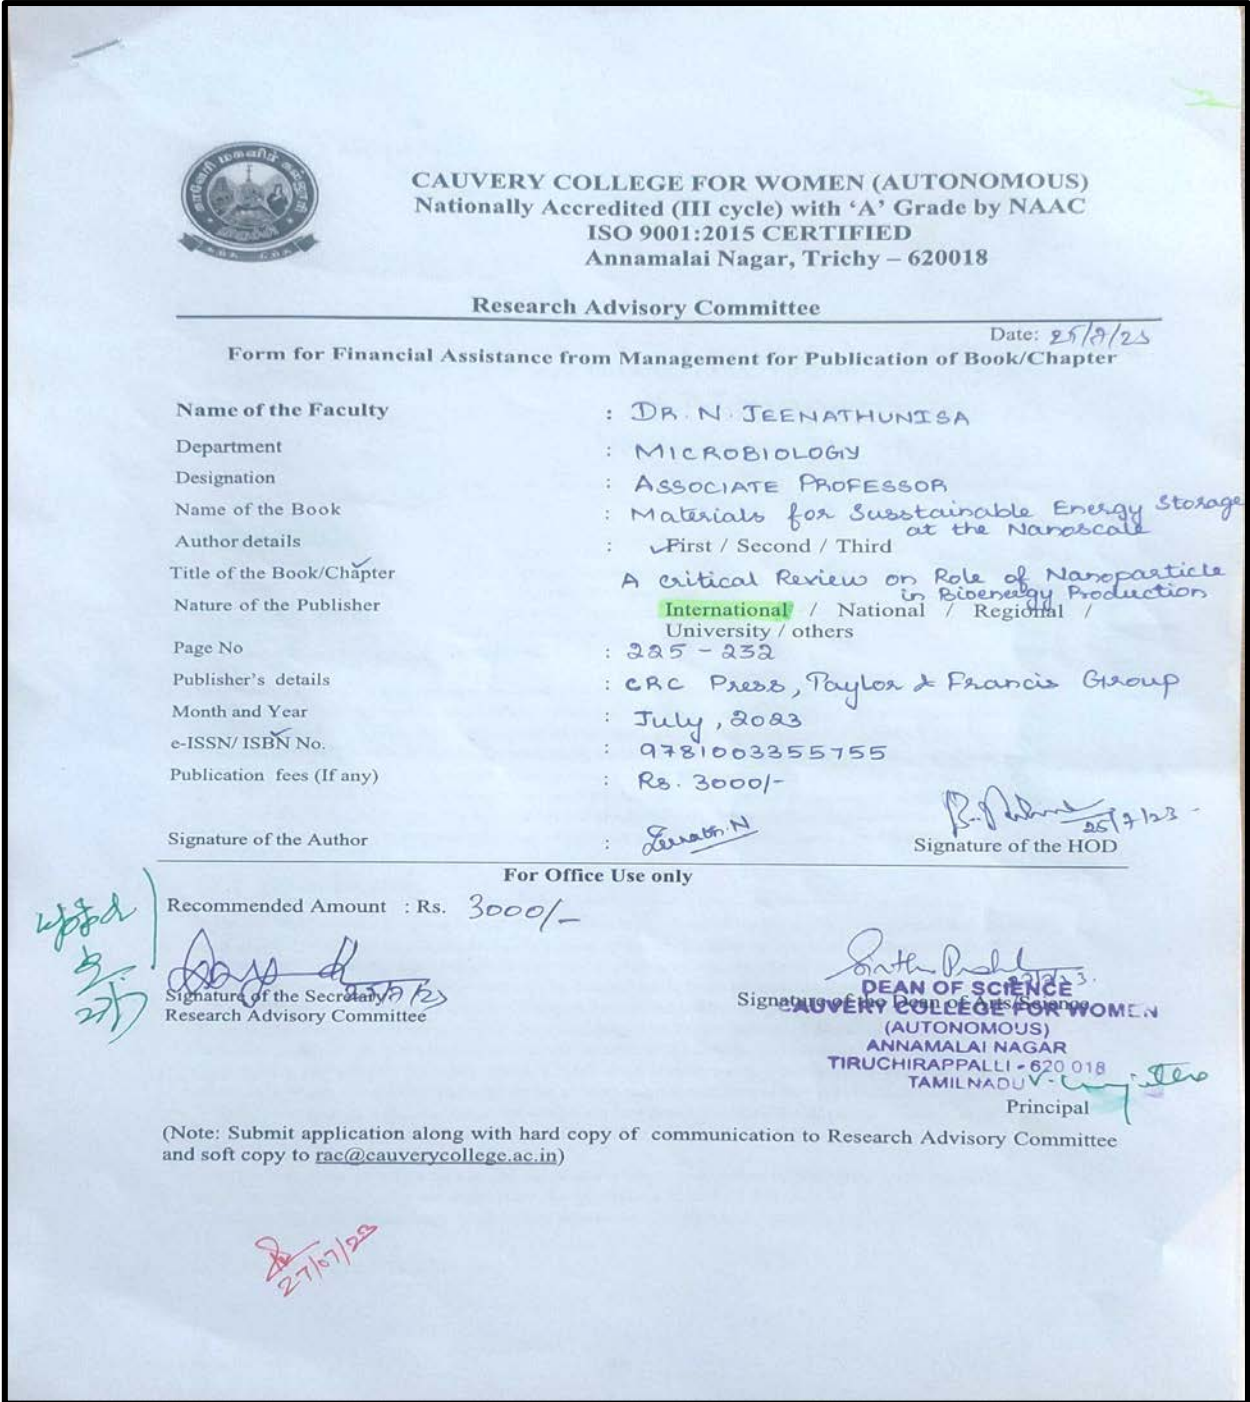 காவேரி மகளிர் கல்லூரி
திருச்சி
CAUVERY COLLEGE FOR WOMEN (AUTONOMOUS)
Nationally Accredited (III cycle) with ‘A’ Grade by NAAC
ISO 9001:2015 CERTIFIED
Annamalai Nagar, Trichy – 620018
Research Advisory Committee
Date: 25/7/23
Form for Financial Assistance from Management for Publication of Book/Chapter
Name of the Faculty : DR. N. JEENATHUNISA
Department : MICROBIOLOGY
Designation : ASSOCIATE PROFESSOR
Name of the Book : Materials for Susstainable Energy Storage
at the Nanoscale
Author details : ✓First / Second / Third
Title of the Book/Chapter A critical Review on Role of Nanoparticle
in Bioenergy Production
Nature of the Publisher International / National / Regional /
University / others
Page No : 225 - 232
Publisher's details : CRC Press, Taylor & Francis Group
Month and Year : July, 2023
e-ISSN/ ISBN No. : 9781003355755
Publication fees (If any) : Rs. 3000/-
25/7/23
Signature of the Author : Jeenath.N
Signature of the HOD
For Office Use only
Recommended Amount : Rs. 3000/-
27/7
Signature of the Secretary
Research Advisory Committee
Signature of the Dean of Arts/Science
DEAN OF SCIENCE
CAUVERY COLLEGE FOR WOMEN
(AUTONOMOUS)
ANNAMALAI NAGAR
TIRUCHIRAPPALLI - 620 018
TAMILNADU
Principal
(Note: Submit application along with hard copy of communication to Research Advisory Committee
and soft copy to rac@cauverycollege.ac.in)
27/07/23